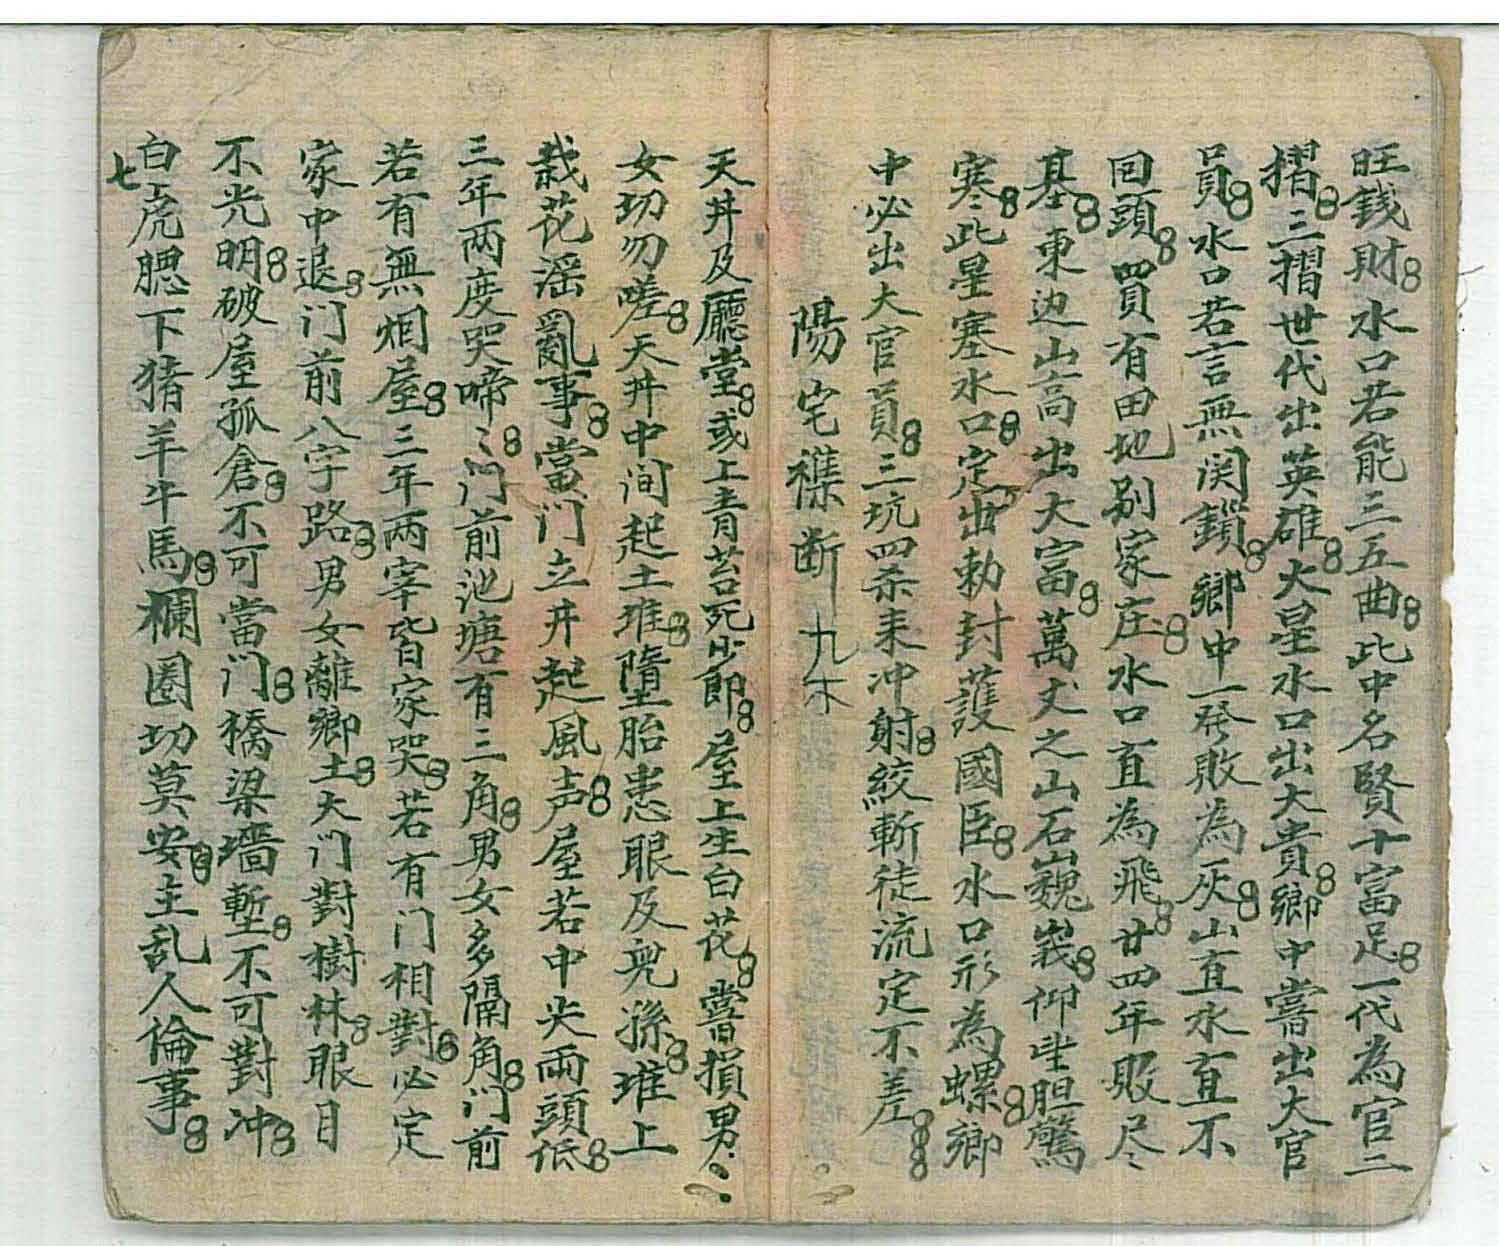 旺錢財水口若能三五曲此中名賢十富足一代為官二
摺三摺世代出英雄大星水口出大貴鄉中當出大官
員水口若言無関鎖鄉中一発敗為灰山直水直不
回頭買有田地别家庄水口直為飛廿四年敗尽
基東边山高出大富萬丈之山石巍峩仰坐胆驚
寒此星塞水口定出勅封護國臣水口形為螺鄉
中必出大官員三坑四杀来冲射絞斬徒流定不差
陽宅襍断九木
天井及廳堂或上青苔死少郎屋上生白花當損男
女切勿嗟天井中间起土堆墮胎患眼及兒孫堆上
栽花淫亂事當门立井起風声屋若中央両頭低
三年两度哭啼々门前池塘有三角男女多隔角门前
若有無烟屋三年两宰皆家哭若有门相對必定
家中退门前八字路男女離鄉土大门對樹林眼目
不光明破屋孤倉不可當门橋梁墻塹不可對冲
白虎腮下猪羊牛馬欄圈切莫安主乱人倫事
七